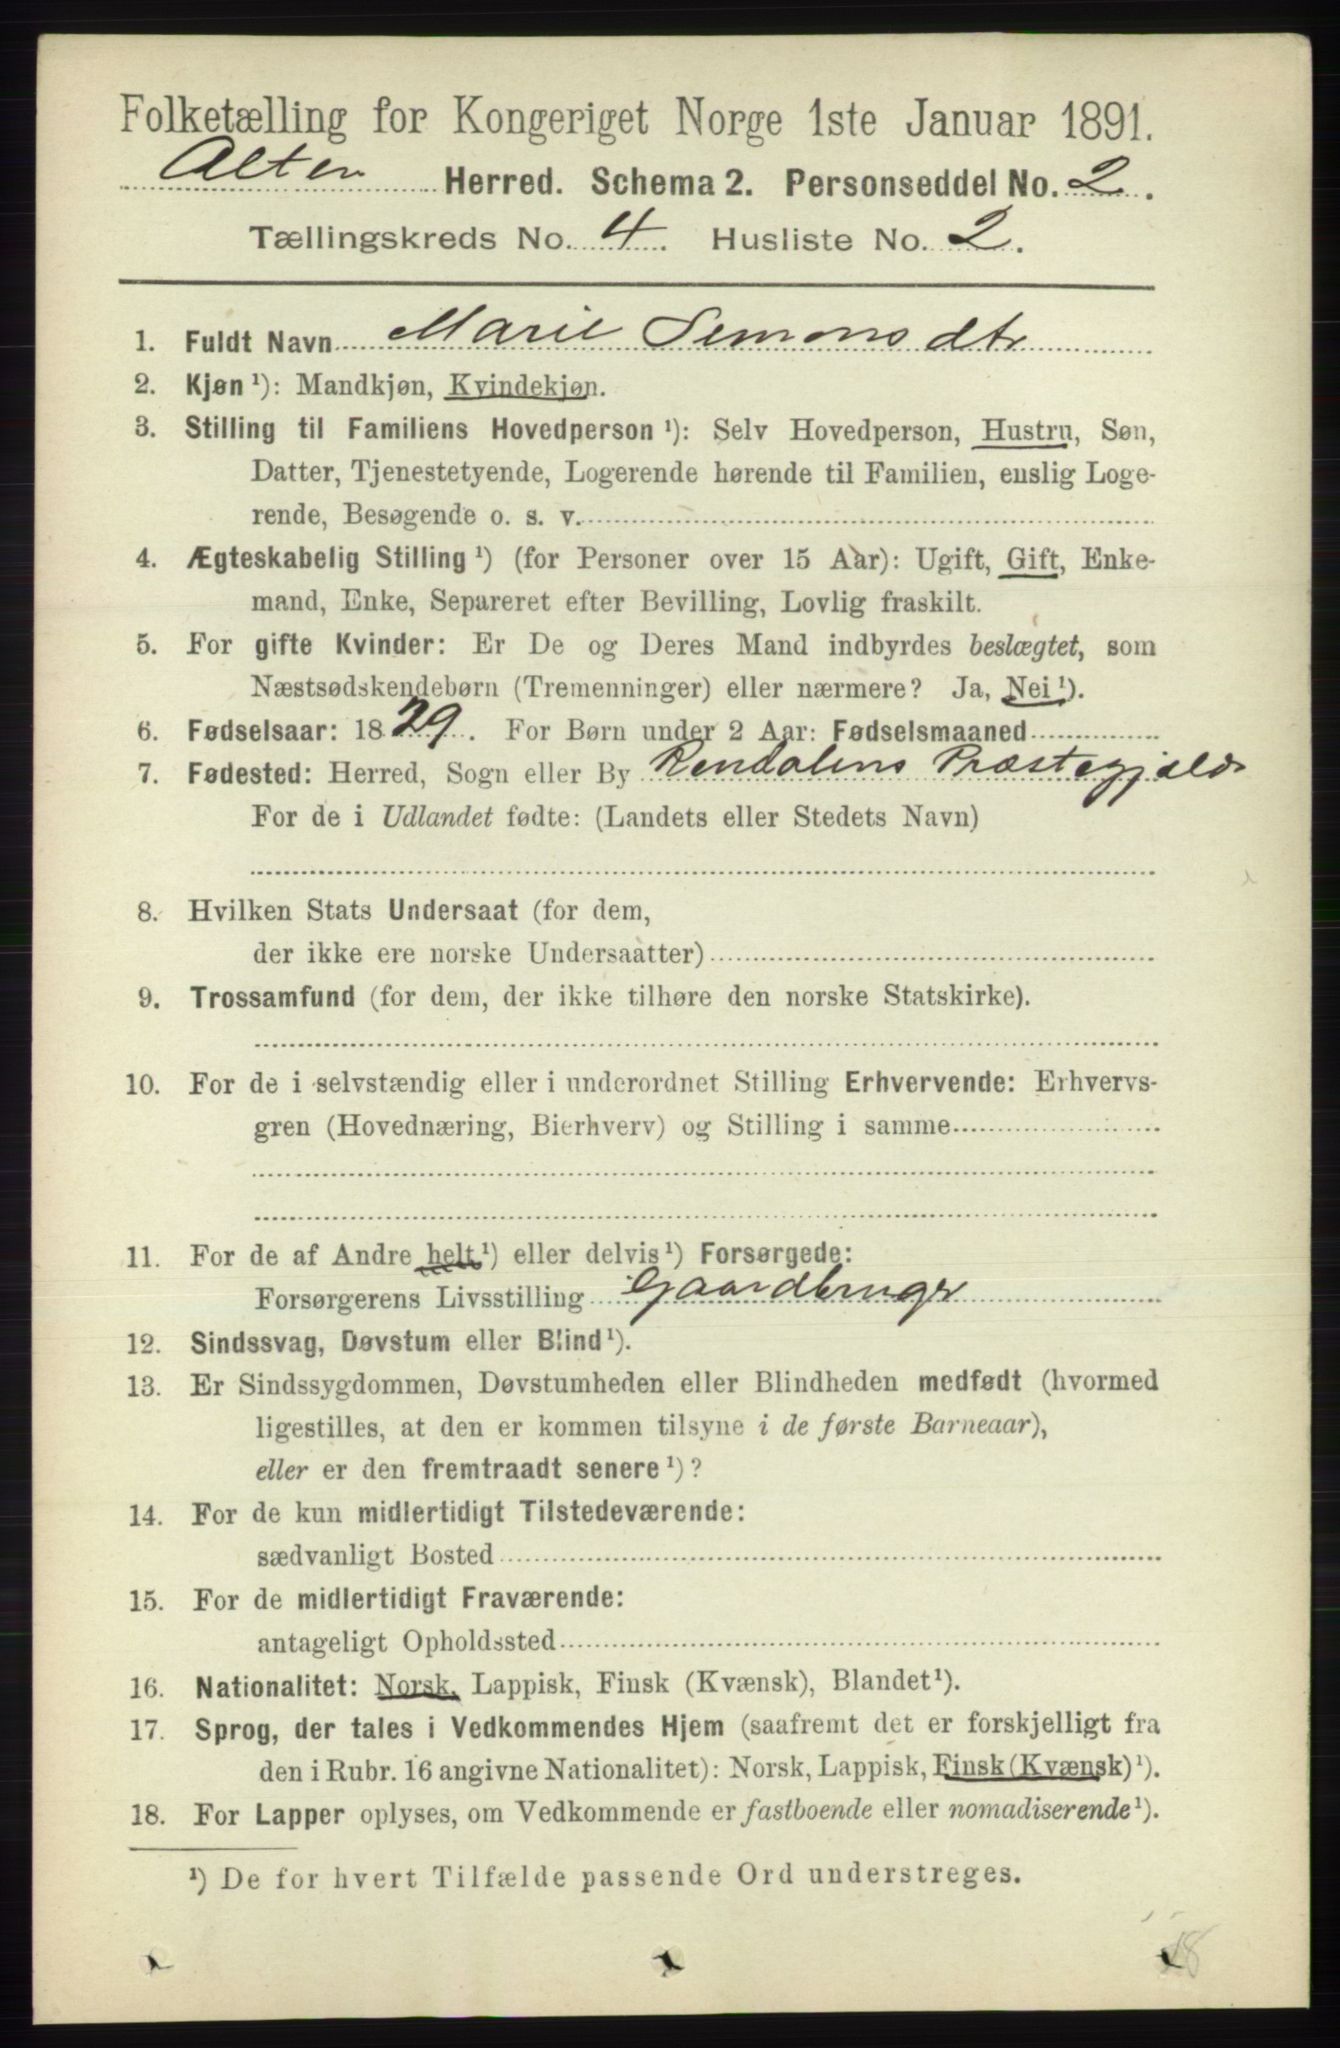 Folketælling for Kongeriget Norge 1ste Januar 1891.
Alten Herred. Schema 2. Personseddel No. 2.
Tællingskreds No. 4. Husliste No. 2.
1. Fuldt Navn Marie Simonsdtr
2. Kjøn ¹): Mandkjøn, Kvindekjøn.
3. Stilling til Familiens Hovedperson ¹): Selv Hovedperson, Hustru, Søn,
Datter, Tjenestetyende, Logerende hørende til Familien, enslig Loge-
rende, Besøgende o. s. v.
4. Ægteskabelig Stilling ¹) (for Personer over 15 Aar): Ugift, Gift, Enke-
mand, Enke, Separeret efter Bevilling, Lovlig fraskilt.
5. For gifte Kvinder: Er De og Deres Mand indbyrdes beslægtet, som
Næstsødskendebørn (Tremenninger) eller nærmere? Ja, Nei ¹).
6. Fødselsaar: 1829. For Børn under 2 Aar: Fødselsmaaned
7. Fødested: Herred, Sogn eller By Rendalens Præstegjæld
For de i Udlandet fødte: (Landets eller Stedets Navn)
8. Hvilken Stats Undersaat (for dem,
der ikke ere norske Undersaatter)
9. Trossamfund (for dem, der ikke tilhøre den norske Statskirke).
10. For de i selvstændig eller i underordnet Stilling Erhvervende: Erhvervs-
gren (Hovednæring, Bierhverv) og Stilling i samme
11. For de af Andre helt ¹) eller delvis ¹) Forsørgede:
Forsørgerens Livsstilling Gaardbruger
12. Sindssvag, Døvstum eller Blind ¹).
13. Er Sindssygdommen, Døvstumheden eller Blindheden medfødt (hvormed
ligestilles, at den er kommen tilsyne i de første Barneaar),
eller er den fremtraadt senere ¹)?
14. For de kun midlertidigt Tilstedeværende:
sædvanligt Bosted
15. For de midlertidigt Fraværende:
antageligt Opholdssted
16. Nationalitet: Norsk, Lappisk, Finsk (Kvænsk), Blandet ¹).
17. Sprog, der tales i Vedkommendes Hjem (saafremt det er forskjelligt fra
den i Rubr. 16 angivne Nationalitet): Norsk, Lappisk, Finsk (Kvænsk) ¹).
18. For Lapper oplyses, om Vedkommende er fastboende eller nomadiserende ¹).
¹) De for hvert Tilfælde passende Ord understreges.